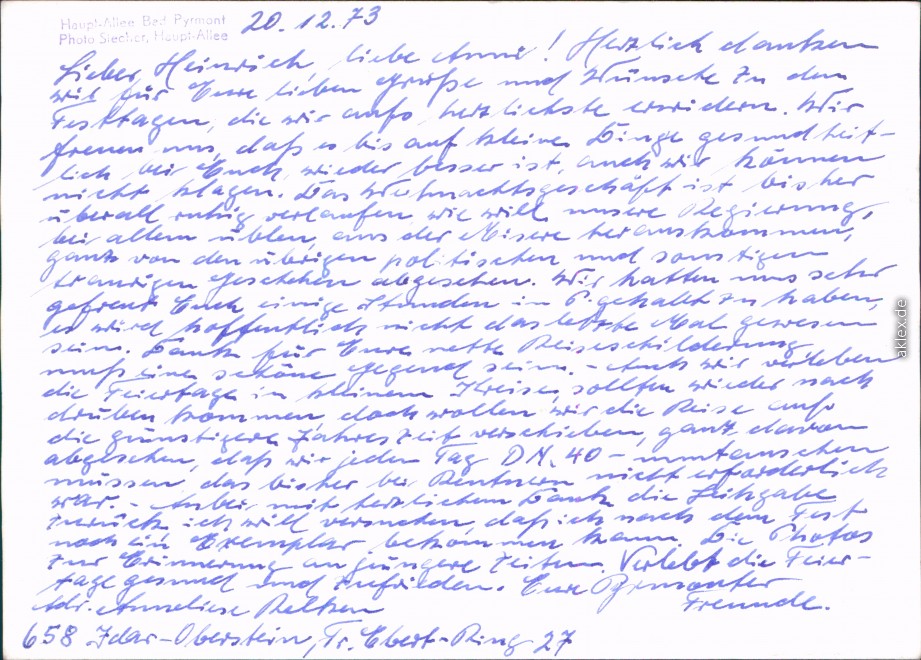 Haupt-Allee Bad Pyrmont
Photo Siecher, Haupt-Allee
20.12.73
Lieber Heinrich, liebe Anni! Herzlich danken
wir für Eure lieben Grüße und Wünsche zu den
Festtagen, die wir aufs herzlichste erwidern. Wir
freuen uns, daß es bis auf kleine Dinge gesundheit-
lich bei Euch wieder besser ist, auch wir können
nicht klagen. Das Weihnachtsgeschäft ist bisher
überall ruhig verlaufen wie will unsere Regierung,
bei allem üblen, aus der Misere herauskommen,
ganz von den übrigen politischen und sonstigen
traurigen Geschehen abgesehen. Wir hatten uns sehr
gefreut Euch einige Stunden in P. gehabt zu haben,
es wird hoffentlich nicht das letzte Mal gewesen
sein. Dank für Eure nette Reiseschilderung
muß eine schöne Gegend sein. - Auch wir verleben
die Feiertage in kleinem Kreise, sollten wieder nach
drüben kommen doch wollen wir die Reise aufs
die günstigere Jahreszeit verschieben, ganz davon
abgesehen, daß wir jeden Tag DM. 40 - umtauschen
müssen, das bisher bei Rentnern nicht erforderlich
war. - Anbei mit herzlichem Dank die Leihgabe
zurück ich will versuchen, daß ich nach dem Fest
noch ein Exemplar bekommen kann. Die Photos
zur Erinnerung an jüngere Zeiten. Verlebt die Feier-
tage gesund und zufrieden. Eure Pyrmonter
Freunde.
Adr. Anneliese
658 Idar-Oberstein, Fr. Ebert-Ring 27
aklex.de